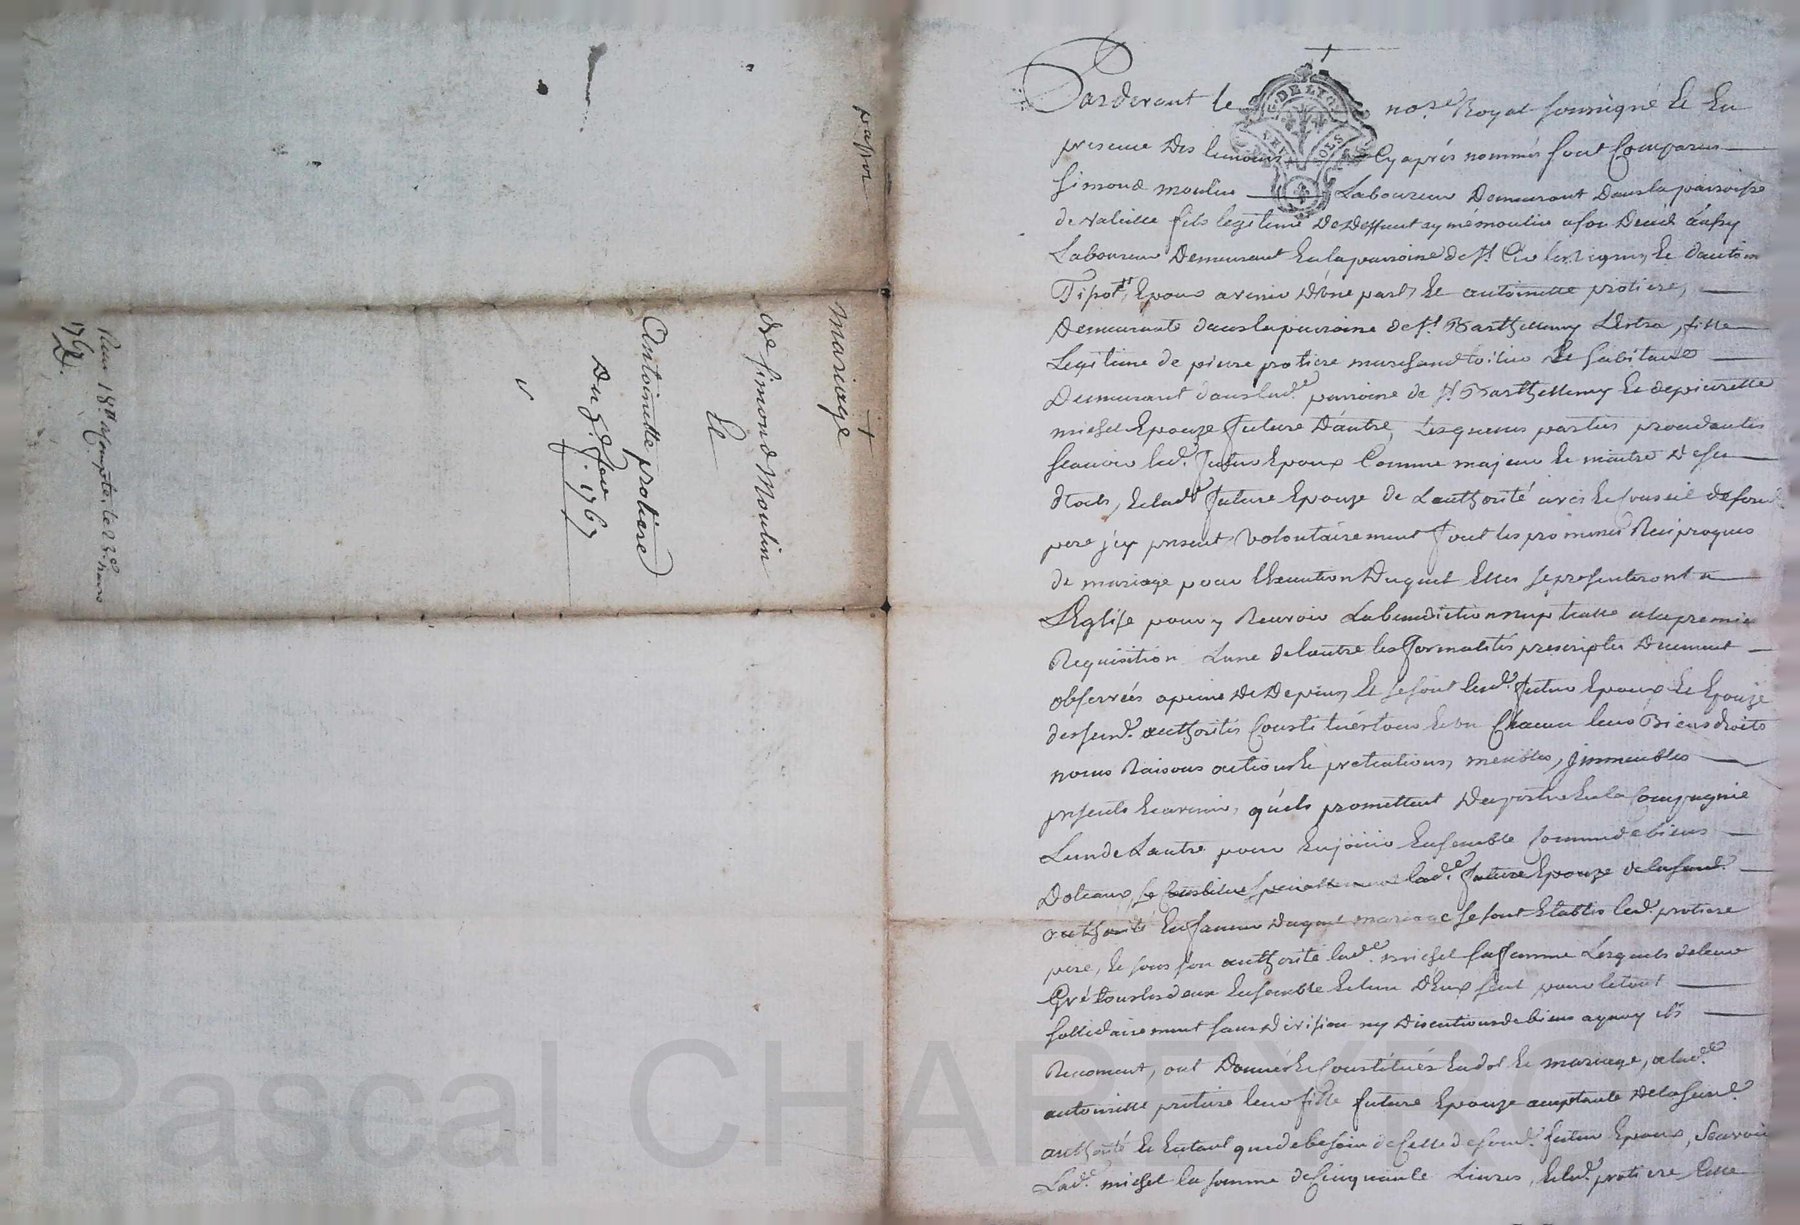 papier
mariage
de simond Moulin
Et
Antoinette protiere
Du 5e. fevr. 1767
Reçu 18tt acompte. le 23e. mars
1767
Pardevant le no.re Royal soussigné Et En
presence Des temoins Cy après nommés sont Comparus
simond moulin Laboureur Demeurant Dans la parroisse
de Valeille fils legitime De deffunt aymé moulin a son Deced
Laboureur Demeurant En la parroisse de st. Et d'antoinette
Epoux avenir D'une part, Et antoinette protiere,
Demeurante dans la parroisse de st. Barthellemy Lestra, fille
Legitime de pierre protiere marchand toilier Et habitant
Demeurant dans lad.e parroisse de st. Barthellemy Et de pierrette
michel Epouze future D'autre, Lesquelles parties procedantes
scavoir led. futur Epoux Comme majeur Et maitre De ses
droits, Et lad.e future Epouze de L'authorité avis Et conseil de son d.
pere jcy present Volontairement font les promesses Reciproques
de mariage pour l'Execution Duquel Elles se presenteront a
L'Eglise pour y Recevoir La benediction nuptialle a la premiere
Requisition Lune de lautre les formalités prescriptes Duement
observées a peine De Depens, Et se sont lesd. futur Epoux Et Epouze
de sesd. authorités Constitués tous Et un Chacun leurs Biens droits
noms Raisons actions Et pretentions, meubles, jmmeubles
presents Et avenir, qu'ils promettent De porter En la Compagnie
Lun de Lautre pour En jouir Ensemble comme de biens
Dotaux, se Constitue specialement lad.e future Epouze de la susd.
authorité En faveur Duquel mariage se sont Etablis led. protiere
pere, Et sous son authorité lad.e michel sa femme Lesquels de leur
Gré tous les deux Ensemble Et l'un D'Eux seul pour le tout
sollidairement sans Division ny Discution de biens a quoy ils
Renoncent, ont Donné Et Constitués En dot Et mariage, a lad.e
antoinette protiere leur fille future Epouze acceptante De la susd.
authorité Et En tant que de besoin de Celle de sond. futur Epoux, Scavoir
Lad.e michel la somme de Cinquante Livres, Et led. protiere Celle
Pascal CHAREYRO